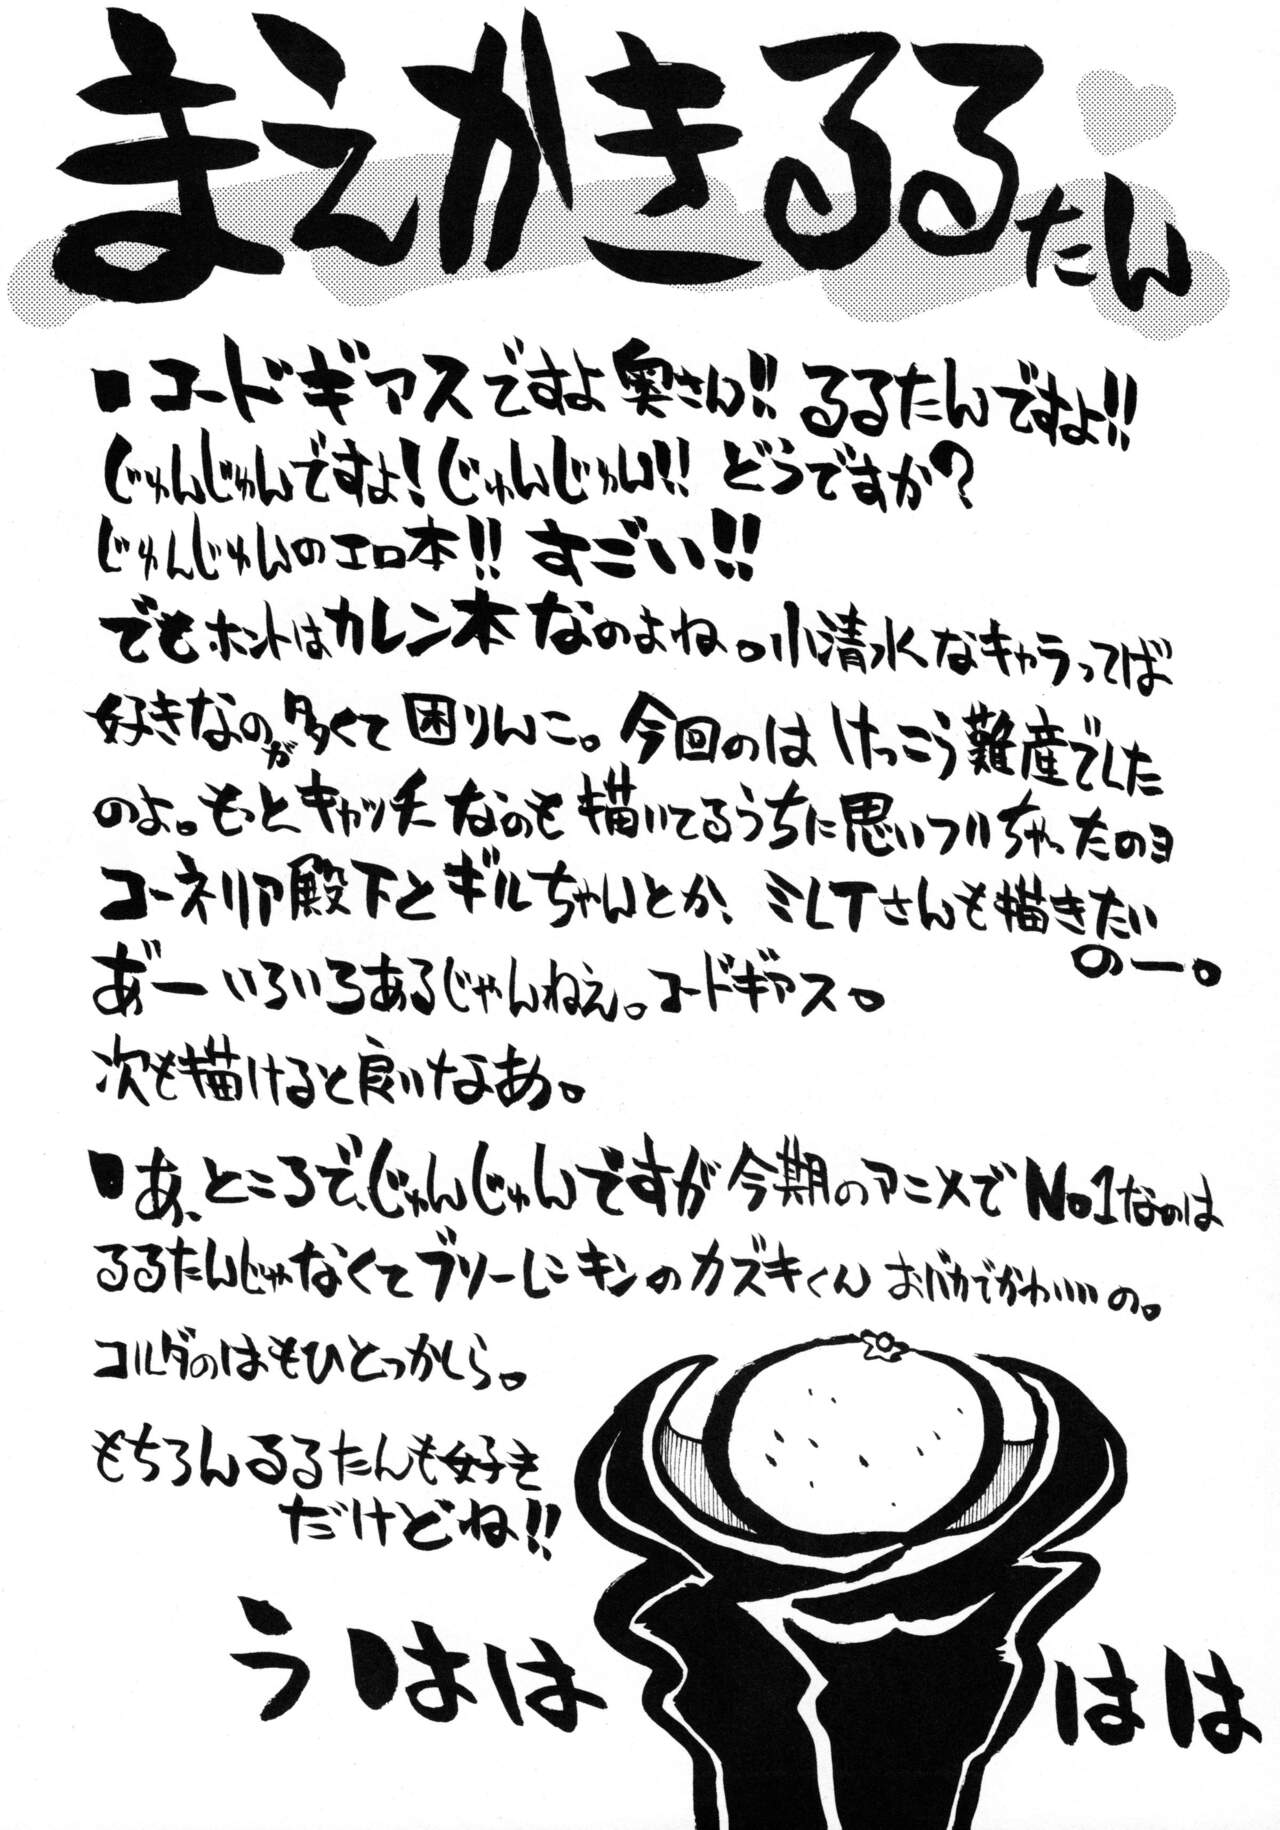 まえかきるるたん
■コードギアスですよ奥さん!!るるたんですよ!!
じゅんじゅんですよ!じゅんじゅん!!どうですか?
じゅんじゅんのエロ本!!すごい!!
でもホントはカレン本なのよね。小清水なキャラってば
好きなのが多くて困りんこ。今回のはけっこう難産でした
のよ。もっとキャッチなのも描いてるうちに思いついちゃったのヨ
コーネリア殿下とギルちゃんとか、ミレイさんも描きたい
のー。
あ゛ーいろいろあるじゃんねえ。コードギアス。
次も描けると良いなあ。
■あ、ところで、じゅんじゅんですが今期のアニメでNo.1なのは
るるたんじゃなくてプリーレシキンのカズキくんおバカでかわいいの。
コルダのはもひとつかしら。
もちろんるるたんも好き
だけどね!!
うははははは